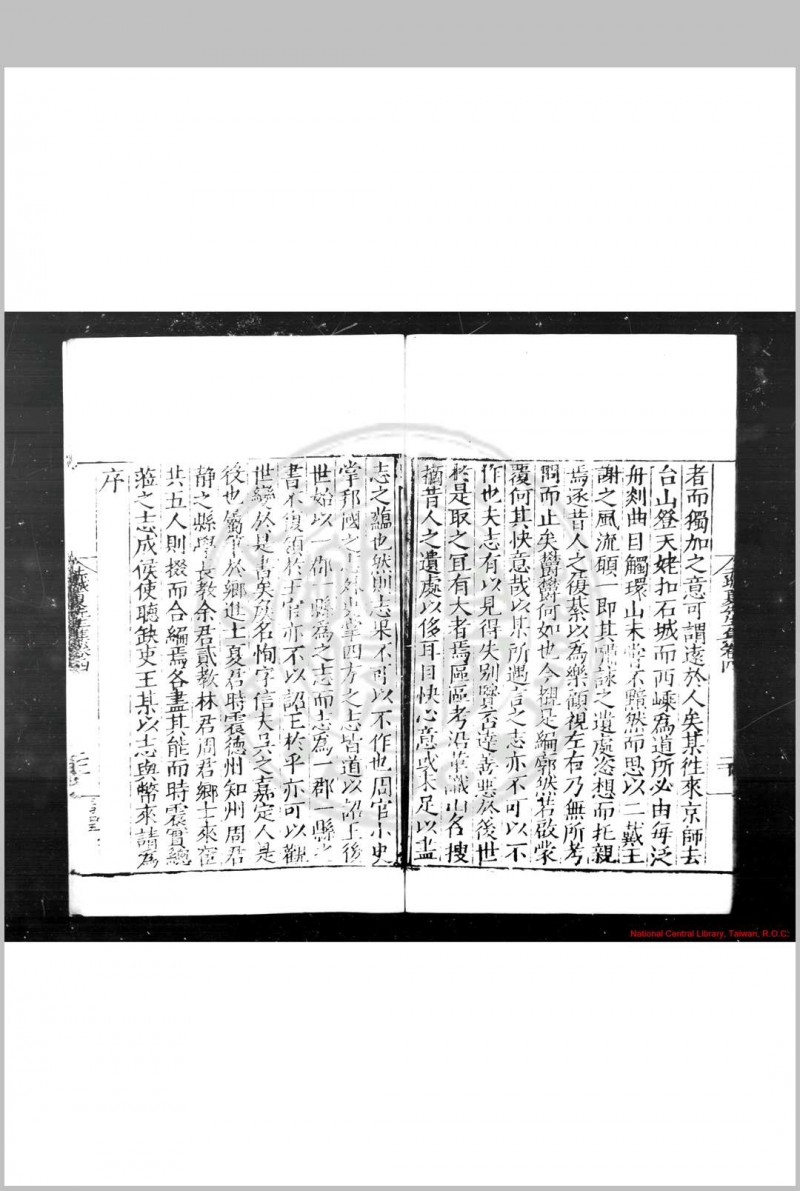 者而獨加之意可謂遠於人矣其往來京師去
台山登天姥扣石城而西嵊為道所必由每泛
舟剡曲目觸環山未嘗不黯然而思以二戴王
謝之風流碩一即其嘯詠之遺處恣想而托親
焉逐昔人之後塵以為樂顧視左右乃無所考
問而止矣鬱鬱何如也今獲是編廓然若啟蒙
覆何其快意哉以某所遇言之志亦不可以不
作也夫志有以見得失別賢否達善惡於後世
於是取之宜有大者焉區區考沿革識山名搜
摘昔人之遺處以侈耳目快心意或未足以盡
志之蘊也然則志果不可以不作也周官小史
掌邦國之志外史掌四方之志皆道以詔王後
世始以一郡一縣為之志而志為一郡一縣之
書不復領於王官亦不以詔王於乎亦可以觀
世變於是書矣侯名恂字信夫吳之嘉定人是
役也屬筆於鄉進士夏君時震德州知州周君
静之縣學長教余君貳教林君周君鄉士來
共五人則掇而合編焉各盡其能而時震實總
蒞之志成侯使聽缺吏王某以志與幣來請為
序
卷四
National Central Library, Taiwan, R.O.C.